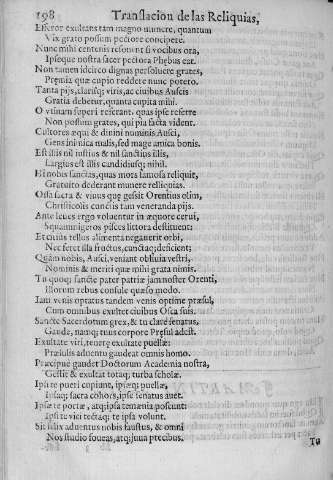 198 Translacion de las Reliquias,
Efferor exultans tam magno munere, quantum
Vix grato possum pectore concipere.
Nunc mihi centenis resonent si vocibus ora,
Ipseque nostra sacer pectora Phębus eat.
Non tamen idcirco dignas persoluere grates,
Pręmia quæ cupio reddere nunc potero.
Tanta pijs, clarisq; viris, ac ciuibus Auscis
Gratia debetur, quanta capita mihi.
O vtinam superi referant, quas ipse referre
Non possum grates, qui pia facta vident.
Cultores æqui & diuini nominis Ausci,
Gens inimica malis, sed mage amica bonis.
Est illis nil iustius & nil sanctius illis,
Largius est illis candidiusq; nihil.
Hi nobis sanctas, quas mors famosa reliquit,
Gratuito dederant munere relliquias.
Ossa sacra & viuus quę gessit Orentius olim,
Christicolis cunctis tam veneranda pijs.
Ante leues ergo voluentur in æquore cerui,
Squammigeros pisces littora destituent:
Et citius tellus alimenta negauerit orbi,
Nec feret illa fructus, cunctaq; deficient;
Quàm nobis, Ausci, veniant obliuia vestri,
Nominis & meriti quæ mihi grata nimis.
Tu quoq; sancte pater patriæ iam noster Orenti,
Illorum rebus consule quæso modo.
Iam venis optatus tandem venis optime præsul,
Cum omnibus exultet ciuibus Osca suis.
Sancte Sacerdotum grex, & tu clare senatus.
Gaude, namq; tuus corpore Pręsul adest.
Exultate viri, teneręq; exultate puellæ:
Præsulis aduentu gaudeat omnis homo.
Præcipuè gaudet Doctorum Academia nostra,
Gestit & exultat totaq; turba scholæ.
Ipsi te pueri capiunt, ipsæq; puellæ,
Ipsaq; sacra cohors, ipse senatus auet.
Ipsæ te portæ, atq; ipsa tęmœnia poscunt:
Ipsi te vici tectaq; te ipsa volunt.
Sit felix aduentus nobis faustus, & omni
Nos studio foueas, atq; iuua precibus.
Tu